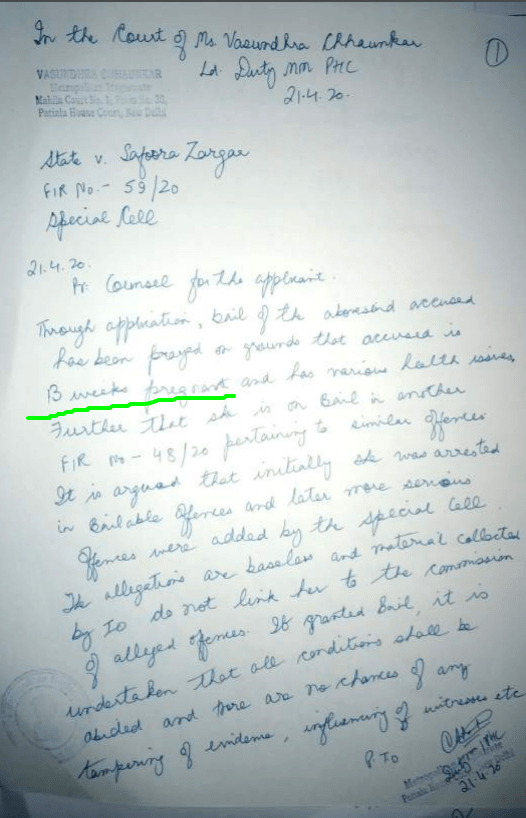 In the Court of Ms Vasundhra Chhaunkar
①
Ld. Duty MM PHC
21.4.20.
VASUNDHRA CHHAUNKAR
Metropolitan Magistrate
Mahila Court No. 1, Room No. 20,
Patiala House Court, New Delhi
State v. Safoora Zargar
FIR No.- 59/20
Special Cell
21.4.20.
Pr: Counsel for the applicant.
Through application, bail of the aforesaid accused
has been prayed on grounds that accused is
13 weeks pregnant and has various health issues,
Further that she is on Bail in another
FIR no - 48/20 pertaining to similar offences.
It is argued that initially she was arrested
in Bailable offences and later more serious
offences were added by the special Cell.
The allegations are baseless and material collected
by IO do not link her to the commission
of alleged offences. If granted Bail, it is
undertaken that all conditions shall be
abided and there are no chances of any
tampering of evidence, influencing of witnesses etc
P.T.O
Duty MM PHC
Metropolitan Magistrate
Patiala House New Delhi
21.4.20